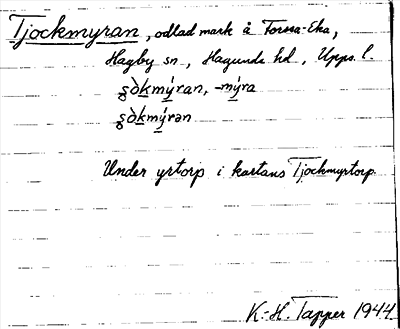 Tjockmyran, odlad mark å Forssa-Eka,
Hagby sn, Hagunda hd, Upps. l.
ʂòkmýran, -mýra
ʂòkmýrən
Under yrtorp i kartans Tjockmyrtorp.
K.-H. Tapper 1944